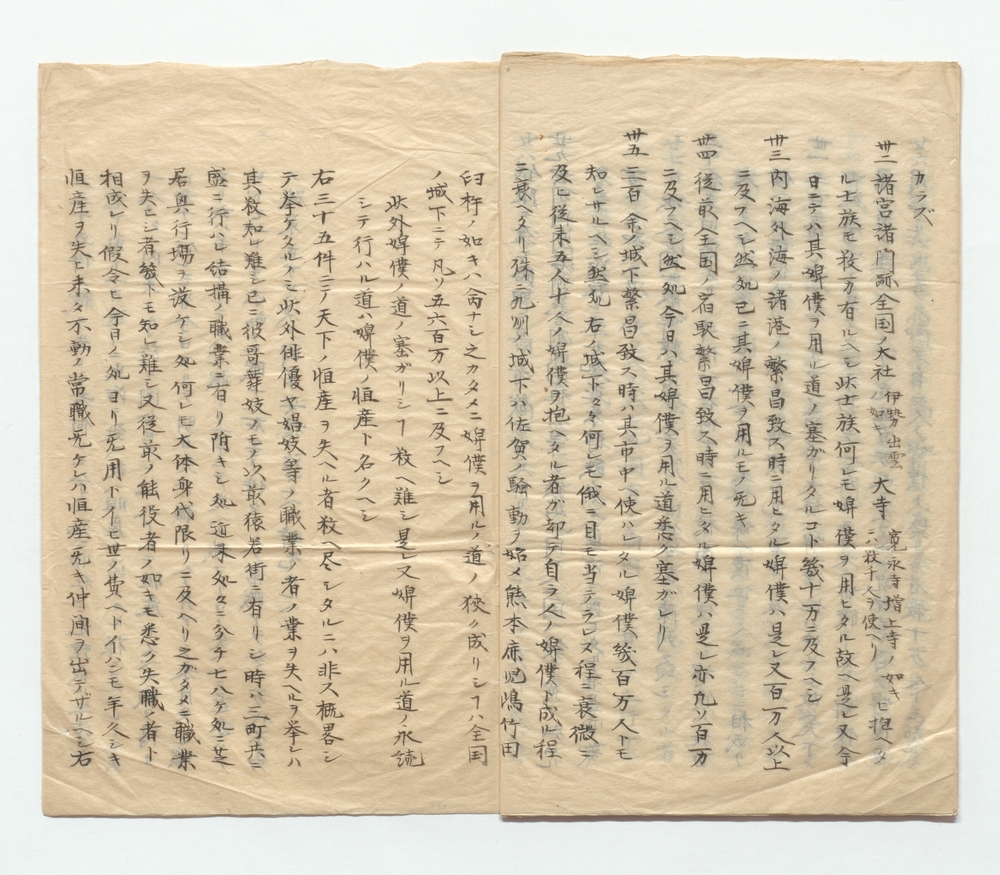 カラズ
卅二 諸宮諸門跡全国ノ大社 伊勢出雲ノ如キ 大寺 寛永寺増上寺ノ如キハ数千人ヲ使ヘリ ヒ抱ヘタ
ル士族モ数万有ルヘシ此士族何レモ婢僕ヲ用ヒタル故ヘ是レ又今
日ニテハ其婢僕ヲ用ル道ノ塞カリタルコト幾十万ニ及フヘシ
卅三 内海外海ノ諸港ノ繁昌致ス時ニ用ヒタル婢僕ハ是レ又百万人以上
ニ及フヘシ然処已ニ其婢僕ヲ用ルモノ旡キ
卅四 従前全国ノ宿駅繁昌致ス時ニ用ヒタル婢僕ハ是レ亦凡ソ百万
ニ及フヘシ然処今日ハ其婢僕ヲ用ル道悉ク塞ガレリ
卅五 三百余ノ城下繁昌致ス時ハ其市中ヘ使ハレタル婢僕幾百万人トモ
知レサルヘシ然処右ノ城下々々何レモ俄ニ目モ当テラレズ程ニ衰微ニ
及ヒ従来五人十人ノ婢僕ヲ抱ヘタル者ガ却テ自ラ人ノ婢僕ト成ル程
ニ衰ヘタリ殊ニ九州ノ城下ハ佐賀ノ騒動ヲ始メ熊本鹿児嶋竹田
臼杵ノ如キハ尚ナシ之カタメニ婢僕ヲ用ルノ道ノ狭ク成リシヿハ全国
ノ城下ニテ凡ソ五六百万以上ニ及フヘシ
此外婢僕ノ道ノ塞ガリシヿ枚ヘ難シ是レ又婢僕ヲ用ル道ノ永続
シテ行ハル道ハ婢僕ノ恒産ト名クヘシ
右三十五件ニテ天下ノ恒産ヲ失ヘル者数ヘ尽シタルニハ非ス概畧シ
テ挙ケタルノミ此外俳優ヤ娼妓等ノ職業ノ者ノ業ヲ失ヘルヲ挙レハ
其数知レ難シ已ニ彼哥舞妓ノモノ以前猿若街ニ有リシ時ハ三町共ニ
盛ニ行ハレ結搆ノ職業ニ有リ附キシ処近来処々ニ分チ七八ケ処ニ芝
居興行場ヲ設ケシ処何レモ大体身代限リニ及ヘリ之ガタメニ職業
ヲ失ヒシ者幾トモ知レ難シ又従前ノ能役者ノ如キモ悉ク失職ノ者ト
相成レリ假令ヒ今日ノ処ヨリ旡用トイヒ世ノ費ヘトイハンモ年久シキ
恒産ヲ失ヒ未タ不動ノ常職旡ケレハ恒産旡キ仲間ヲ出テザルヘシ右